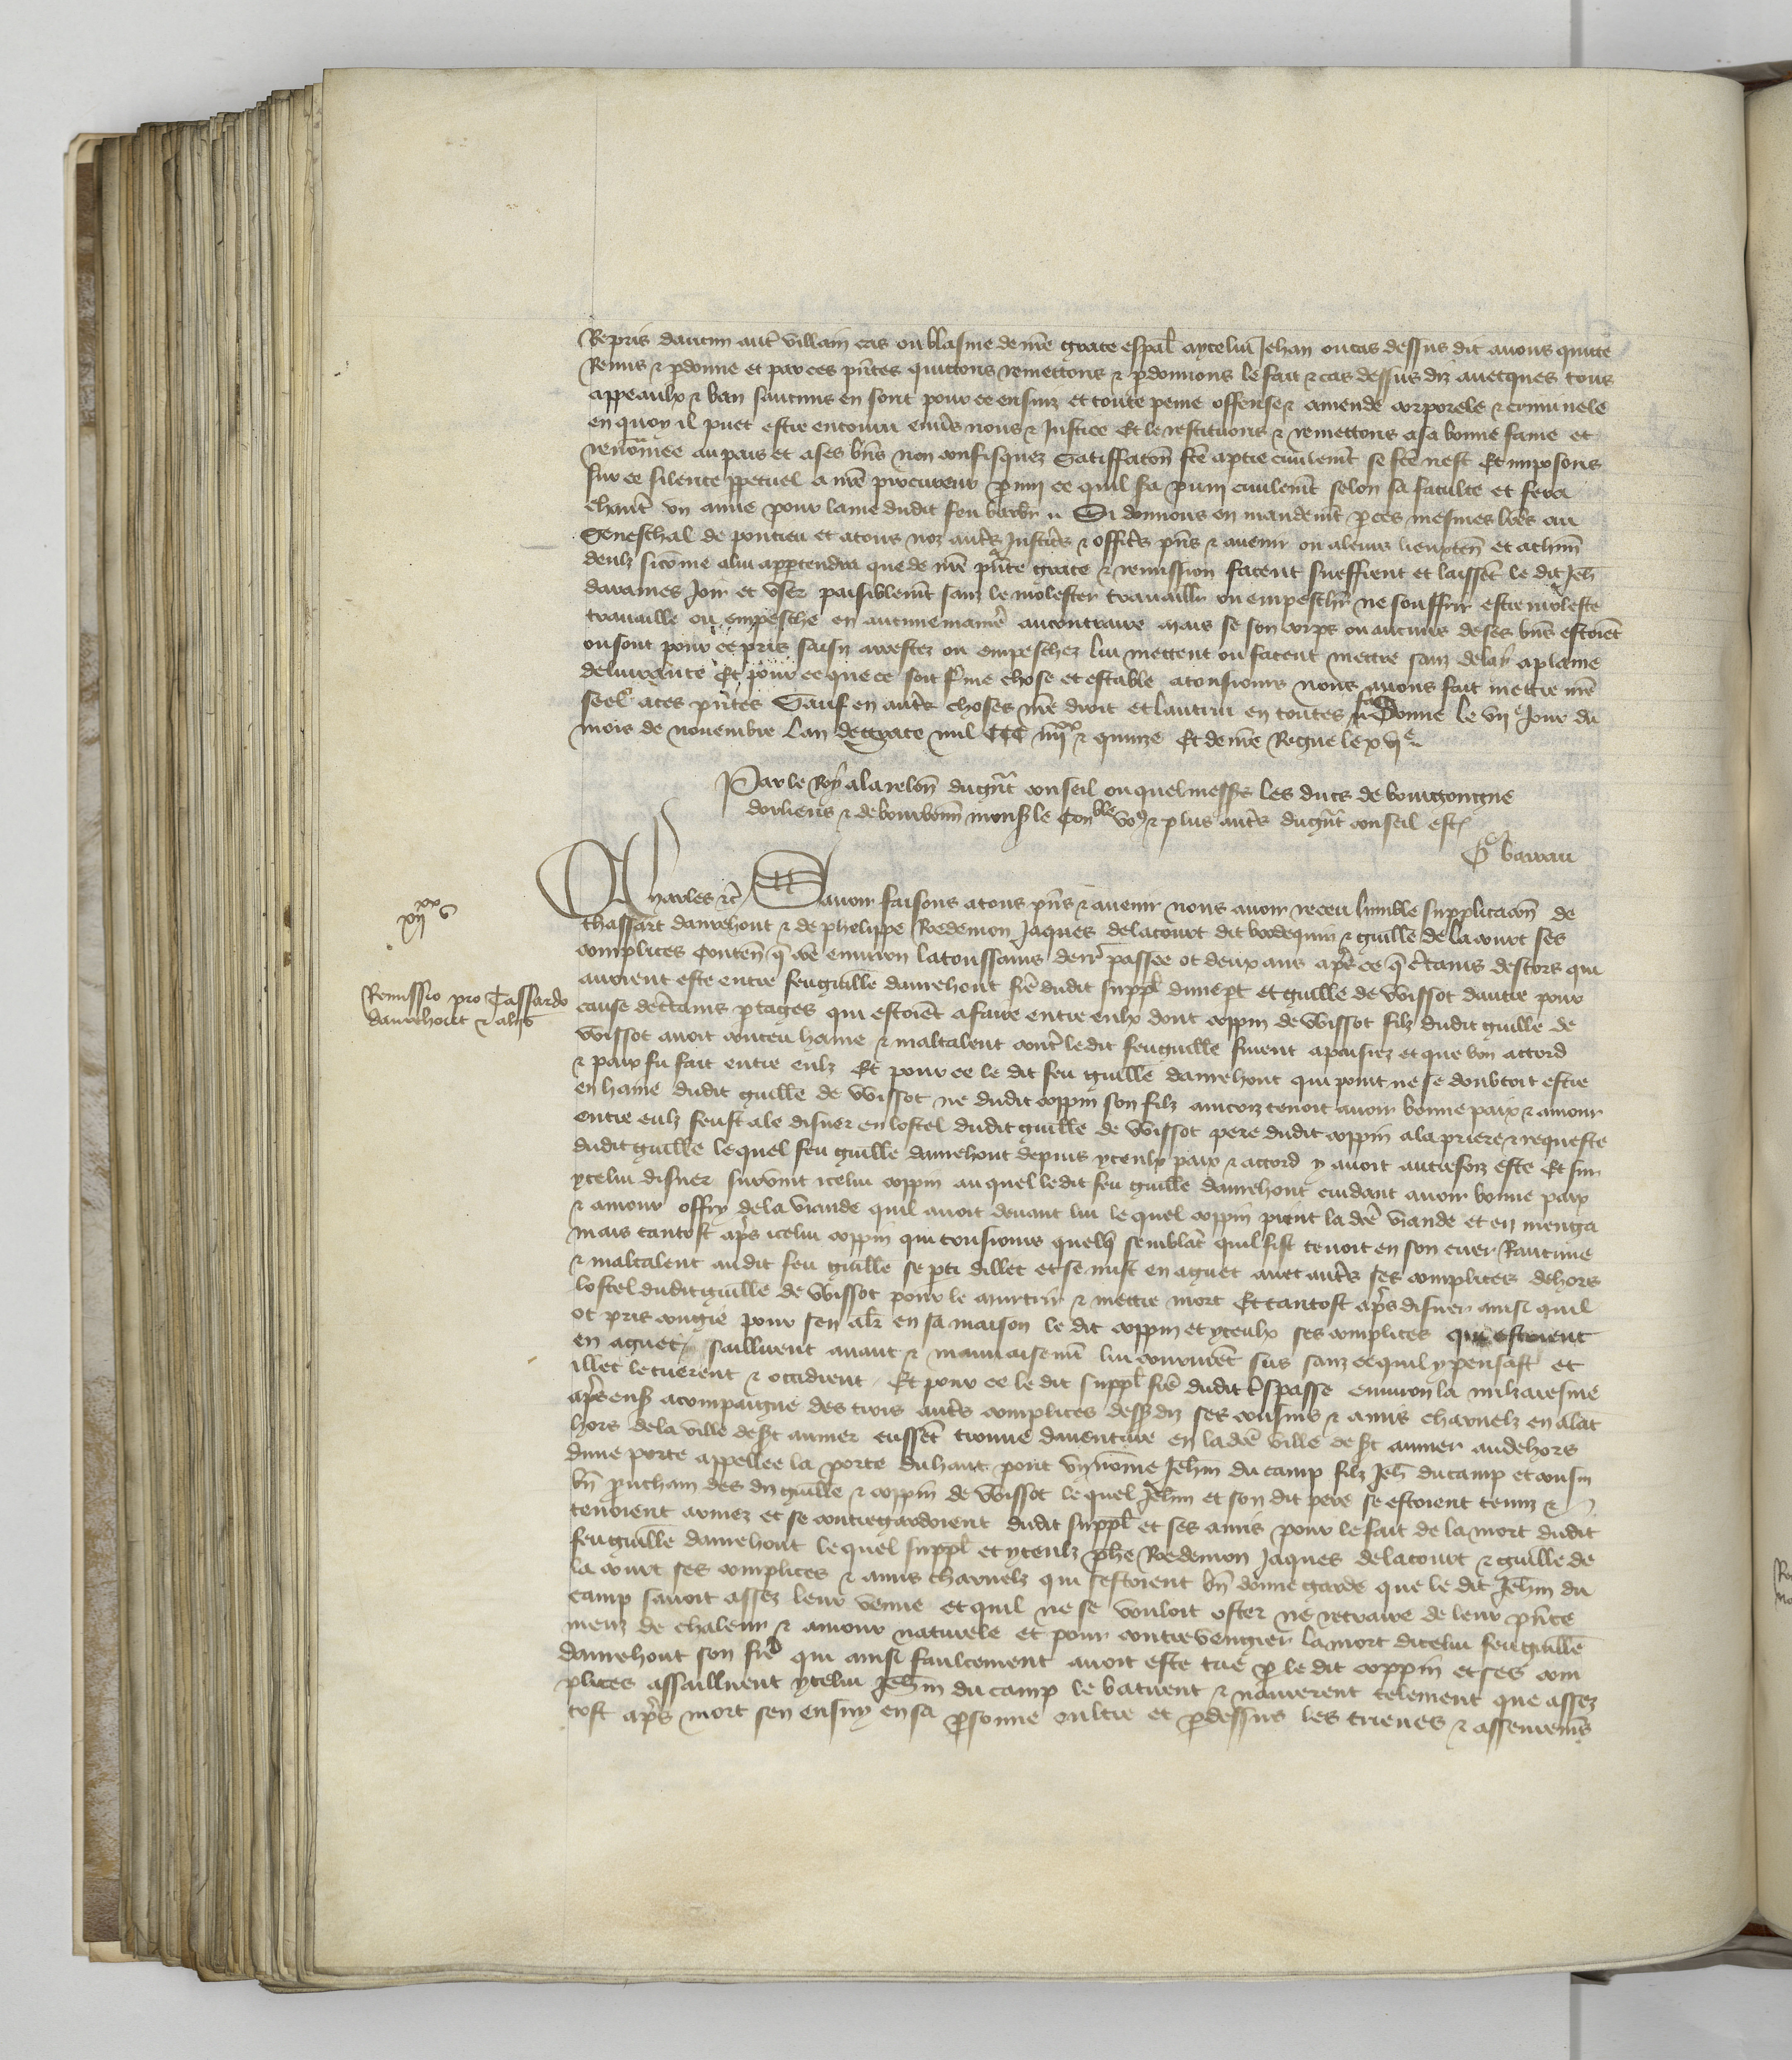 Repris daucun aut villain cas ou blasme de nre grace espal a ycelui Jehan ou cas dessus dit avons quicte
Remis & pdonne et par ces pntes quictons remettons & pdonnons le fait & cas dessus diz avecques tous
appeaulx & ban saucuns en sont pour ce ensuiz et toute peine offense & amende corporele & criminele
en quoy il puet estre encouru envers nous & Justice Et le restituons & remettons a sa bonne fame et
renommee au pais et a ses bns non confisquez Satiffacon fce a ptie civilemt se fce nest Et imposons
sur ce silence ppetuel a nre procureur pmi ce quil sa puni civilemt selon sa faculte et fera
chant un anne pour lame dudit feu Si donnons en mandemt p ces mesmes lres au
Seneschal de pontieu et a tous noz auts Justices & offices pns & avenir ou a leurs lieuxten et a chun
deulz si comme a lui apptendra que de nre pnte grace & remission facent sueffrent et laissent le dit Jeh
davames Joir et user paisiblemt sanz le molester travaillr ou empeschr ne souffrir estre moleste
travaille ou empesche en aucune maniere au contraire mais se son corps ou aucuns de ses bns estoient
ou sont pour ce pris saisiz arrestez ou empeschez lui mettent ou facent mettre sanz delay a plaine
delivrance Et pour ce que ce soit ferme chose et estable a tousiours nous avons fait mettre nre
seel a ces pntes Sauf en auts choses nre droit et lautrui en toutes Donne le vije Jour du
mois de novembre Lan de grace mil CCC iiijxx & quinze Et de nre Regne le xvje
Par le Roy a la relon du gnt conseil ouquel messrs les ducs de bourgongne
dorliens & de bourbonn mons le Conble vo9 & plus auts du gnt conseil est
G barrau
Charles &c Savoir faisons a tous pns & avenir nous avoir receu humble supplicacon de
thassart damehout & de phelippe Roedemon Jaques de la court dit bodequin & guille de la court ses
xijxx v
complices Conten q come environ la toussains derr passee ot deux ans apres ce q ctains descors qui
avoient este entre feu guille damehout frere dudit suppl dune pt et guille de Wissot dautre pour
Remissio pro Tassardo
damehout & aliis
cause de ctains ptages qui estoient a faire entre eulx dont coppin de Wissot filz dudit guille de
Wissot avoit conceu haine & maltalent cont ledit feu guille furent apaisiez et que bon accord
& paix fu fait entre eulz Et pour ce le dit feu guille damehout qui point ne se doubtoit estre
en haine dudit guille de Wissot ne dudit coppin son filz aincoiz tenoit avoir bonne paix & amour
entre eulz feust ale disner en lostel dudit guille de Wissot pere dudit coppin a la priere & requeste
dudit guille lequel feu guille damehout depuis yceulx paix & accord y avoit autresfoiz este Et sur
ycelui disner survint icelui coppin auquel ledit feu guille damehout cuidant avoir bonne paix
& amour offry de la viande quil avoit devant lui lequel coppin print la dce viande et en menga
mais tantost aps icelui coppin qui tousiours quelq semblant quil fist tenoit en son cuer Rancune
& maltalent audit feu guille se pti dillec et se mist en aguet avec auts ses complices dehors
lostel dudit guille de Wissot pour le murtrir & mettre mort Et tantost aps disner ainsi quil
ot pris congie pour sen alr en sa maison le dit coppin et yceulx ses complices qui estoient
en aguet saillirent avant & mauvaisemt lui coururent sus sanz ce quil y pensast et
illec le tuerent & occidrent Et pour ce le dit suppl frere dudit tspasse environ la micaresme
apres ens acompaigne des trois auts complices dess diz ses cousins & amis charnelz en alat
hors de la ville de st aumer eussent trouve daventure en la dce ville de st aumer au dehors
dune porte appellee la porte du haut pont un nomme Jehin du camp filz Jeh du camp et cousin
bn prouchain des diz guille & coppin de Wissot lequel Jehin et son dit pere se estoient tenuz &
tenoient armez et se contregardoient dudit suppl et ses amis pour le fait de la mort dudit
feu guille damehout lequel suppl et yceulz phe Roedemon Jaques de la court & guille de
la court ses complices & amis charnelz qui sestoient bn donne garde que le dit Jehin du
camp savoit assez leur venue et quil ne se vouloit oster ne retraire de leur pnce
meuz de chaleur & amour naturele et pour contrevengier la mort dicelui feu guille
damehout son frere qui ainsi faulcement avoit este tue p le dit coppin et ses com
plices assaillirent ycelui Jehin du camp le batirent & navrerent telement que assez
tost aps mort sen ensuy en sa psonne oultre et pdessus les trieves & asseuremens